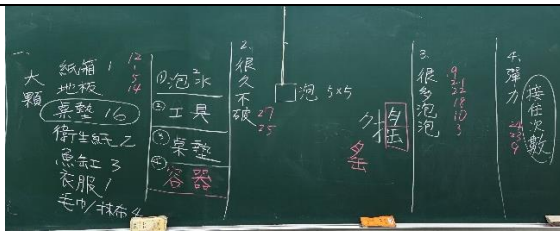 大顆
紙箱 1
地板
桌墊 16
衛生紙 2
魚缸 3
衣服 1
毛巾/抹布 4
12
5
14
① 泡水
② 工具
③ 桌墊
④ 容器
2. 很久不破
27
25
泡 5×5
3. 很多泡泡
9
21
22
18
10
3
4. 彈力
接住次數
9